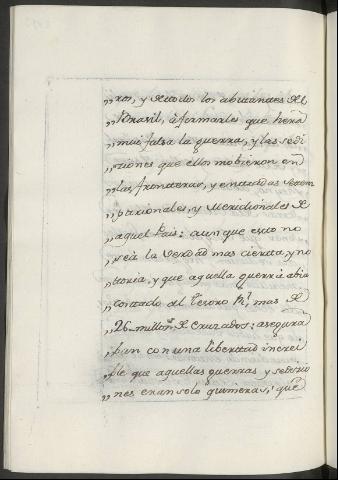 „ros, y de todos los abitantes del
„Brasil, áfirmarles que héra
„mui falsa la guerra, y las sedi
„ciones que ellos mobieron en
„las fronteras, y entradas Seten
„trionales, y Meridionales de
„aquel Pais; aunque esto no
„sea la verdad mas cierta, y no
„toria, y que aquella guerra abia
„contado al Tesoro Rl mas de
„26 millons de cruzados; asegura
„ban con una libertad increi
„ble que aquellas guerras y sedicio
„nes eran solo quimeras; que